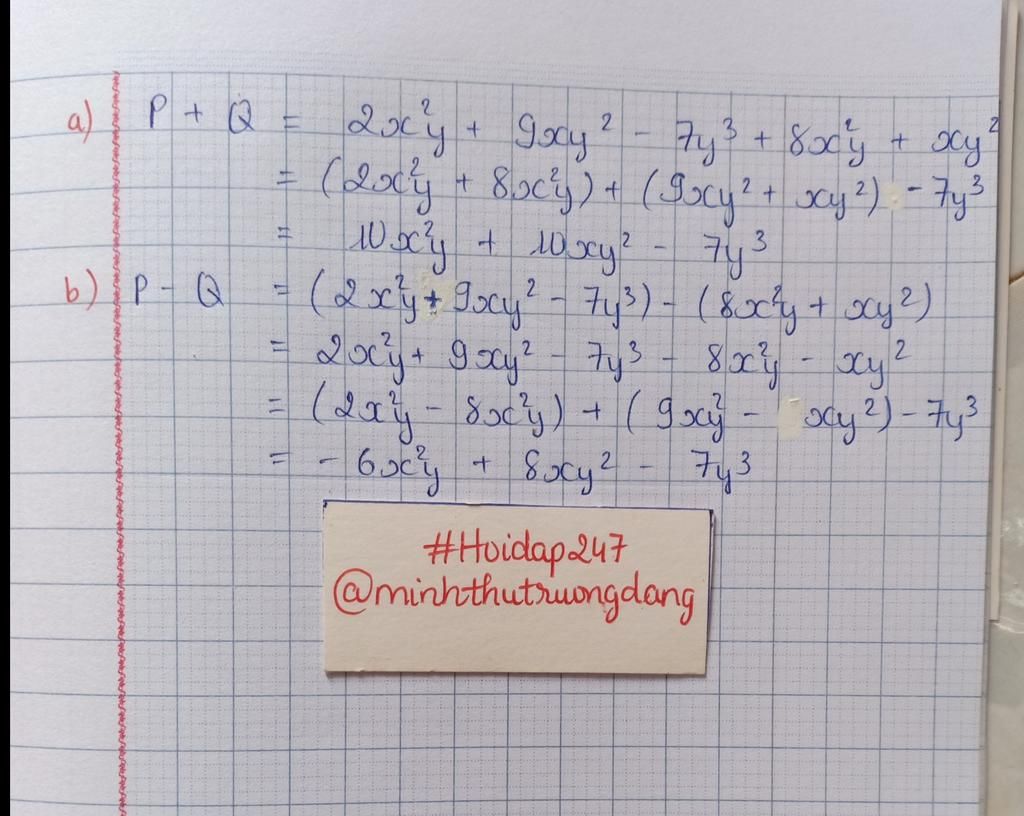 a) P + Q = 2x²y + 9xy² - 7y³ + 8x²y + xy²
= (2x²y + 8x²y) + (9xy² + xy²) - 7y³
= 10x²y + 10xy² - 7y³
b) P - Q = (2x²y + 9xy² - 7y³) - (8x²y + xy²)
= 2x²y + 9xy² - 7y³ - 8x²y - xy²
= (2x²y - 8x²y) + (9xy² - xy²) - 7y³
= - 6x²y + 8xy² - 7y³
#Hoidap247
@minhthutruongdang